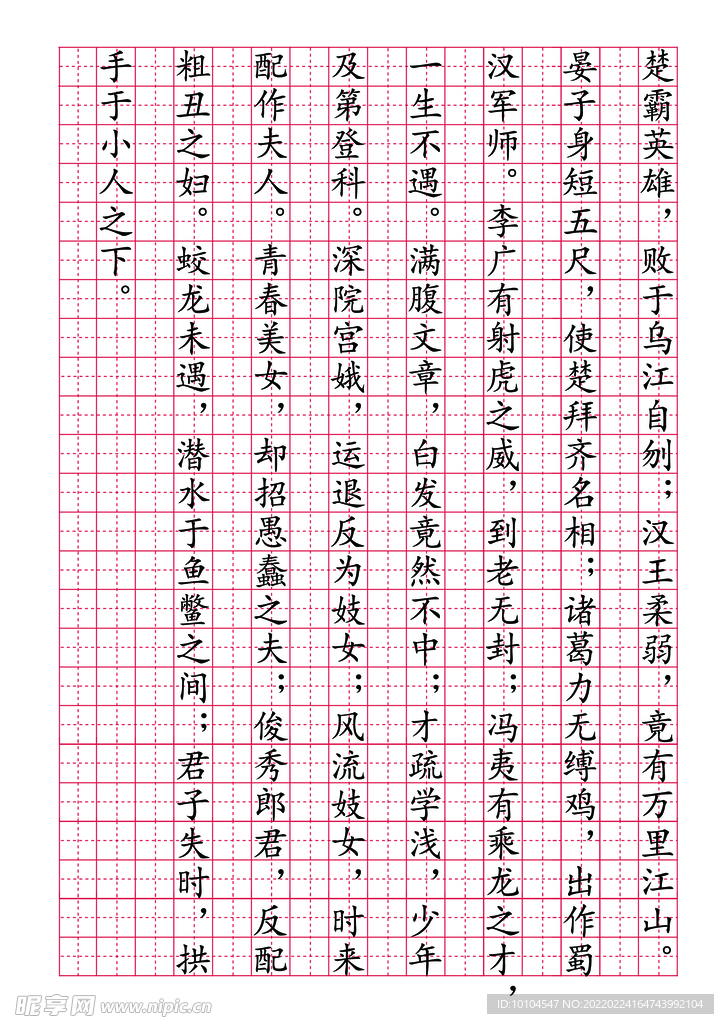 楚霸英雄，败于乌江自刎；汉王柔弱，竟有万里江山。
晏子身短五尺，使楚拜齐名相；诸葛力无缚鸡，出作蜀
汉军师。李广有射虎之威，到老无封；冯夷有乘龙之才，
一生不遇。满腹文章，白发竟然不中；才疏学浅，少年
及第登科。深院宫娥，运退反为妓女；风流妓女，时来
配作夫人。青春美女，却招愚蠢之夫；俊秀郎君，反配
粗丑之妇。蛟龙未遇，潜水于鱼鳖之间；君子失时，拱
手于小人之下。
昵享网 www.nipic.cn
ID:10104547 NO:20220224164743992104